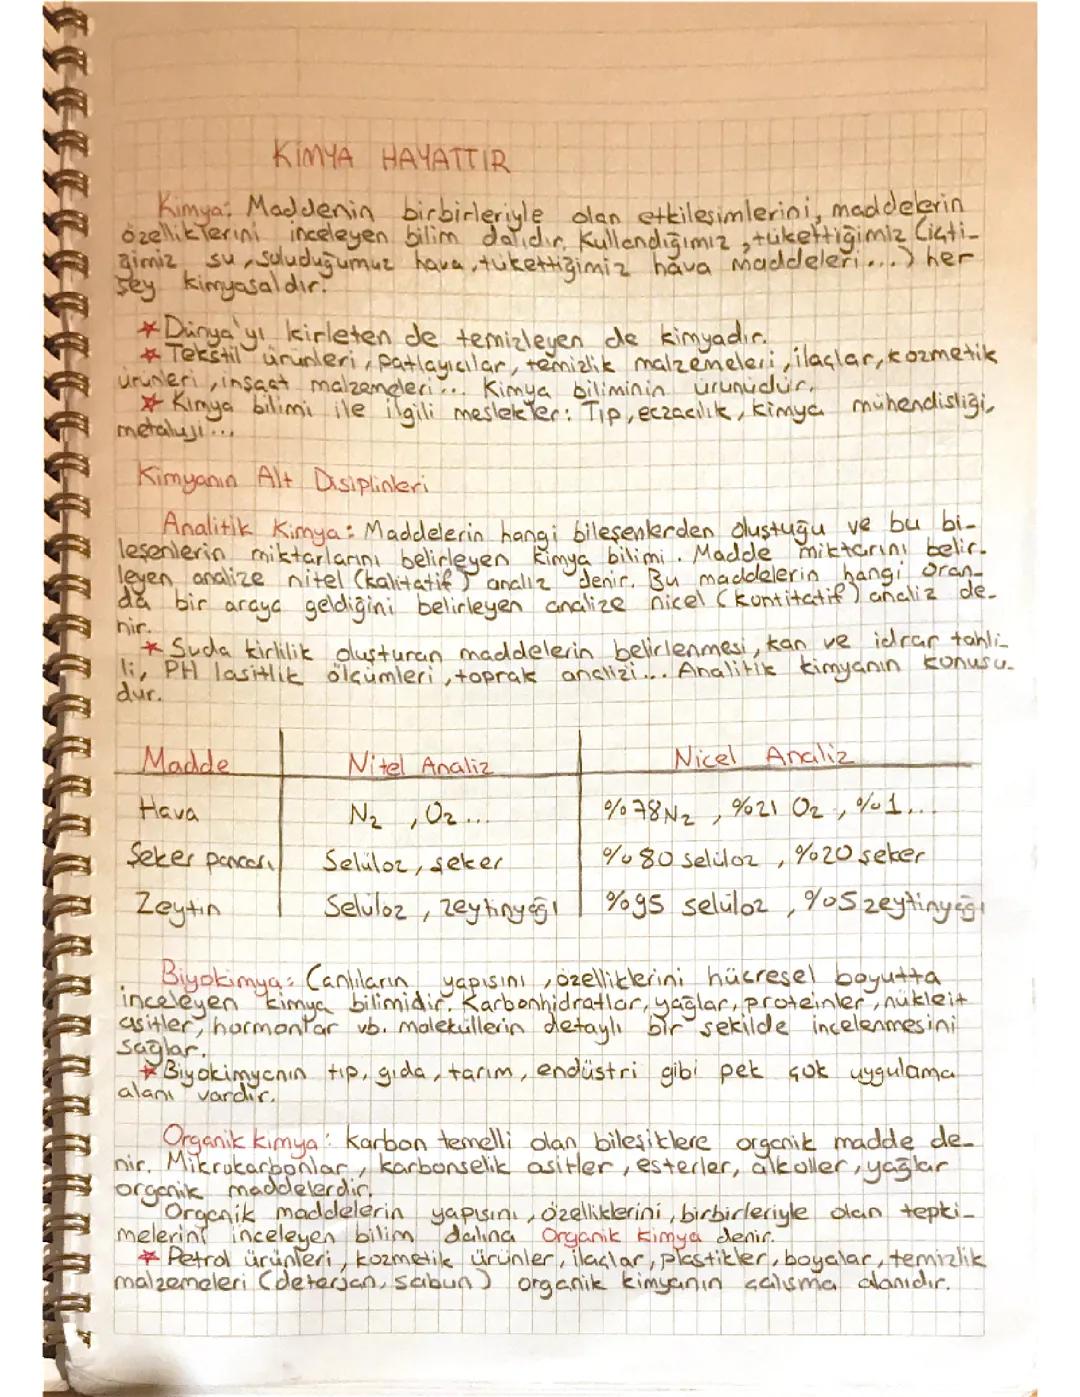 KİMYA HAYATTIR
Kimya: Maddenin birbirleriyle olan etkileşimlerini, maddelerin
özelliklerini inceleyen bilim dalıdır. Kullandığımız, tükettiğimiz (içti-
ğimiz su, soluduğumuz hava, tükettiğimiz hava maddeleri...) her
şey kimyasaldır.
* Dünya'yı kirleten de temizleyen de kimyadır.
* Tekstil ürünleri, patlayıcılar, temizlik malzemeleri, ilaçlar, kozmetik
ürünleri, inşaat malzemeleri... Kimya biliminin ürünüdür.
* Kimya bilimi ile ilgili meslekler: Tıp, eczacılık, kimya mühendisliği,
metaluji...
Kimyanın Alt Disiplinleri
Analitik Kimya: Maddelerin hangi bileşenlerden oluştuğu ve bu bi-
leşenlerin miktarlarını belirleyen kimya bilimi. Madde miktarını belir-
leyen analize nitel (kalitatif) analiz denir. Bu maddelerin hangi oran-
da bir araya geldiğini belirleyen analize nicel (kontitatif) analiz de-
nir.
* Suda kirlilik oluşturan maddelerin belirlenmesi, kan ve idrar tahli-
li, PH lasitlik ölçümleri, toprak analizi... Analitik kimyanın konusu-
dur.
Madde Nitel Analiz Nicel Analiz
Hava N₂, O₂... %78N₂, %21 O₂, %1...
Şeker pancarı Selüloz, şeker %80 selüloz, %20 şeker
Zeytin Selüloz, zeytinyağı %95 selüloz, %5 zeytinyağı
Biyokimya: Canlıların yapısını, özelliklerini hücresel boyutta
inceleyen kimya bilimidir. Karbonhidratlar, yağlar, proteinler, nükleit
asitler, hormonlar vb. moleküllerin detaylı bir şekilde incelenmesini
sağlar.
* Biyokimyanın tıp, gıda, tarım, endüstri gibi pek çok uygulama
alanı vardır.
Organik kimya: Karbon temelli olan bileşiklere organik madde de-
nir. Mikrokarbonlar, karbonselik asitler, esterler, alkoller, yağlar
organik maddelerdir.
Organik maddelerin yapısını, özelliklerini, birbirleriyle olan tepki-
melerini inceleyen bilim dalına Organik Kimya denir.
* Petrol ürünleri, kozmetik ürünler, ilaçlar, plastikler, boyalar, temizlik
malzemeleri (deterjan, sabun) organik kimyanın çalışma alanıdır.